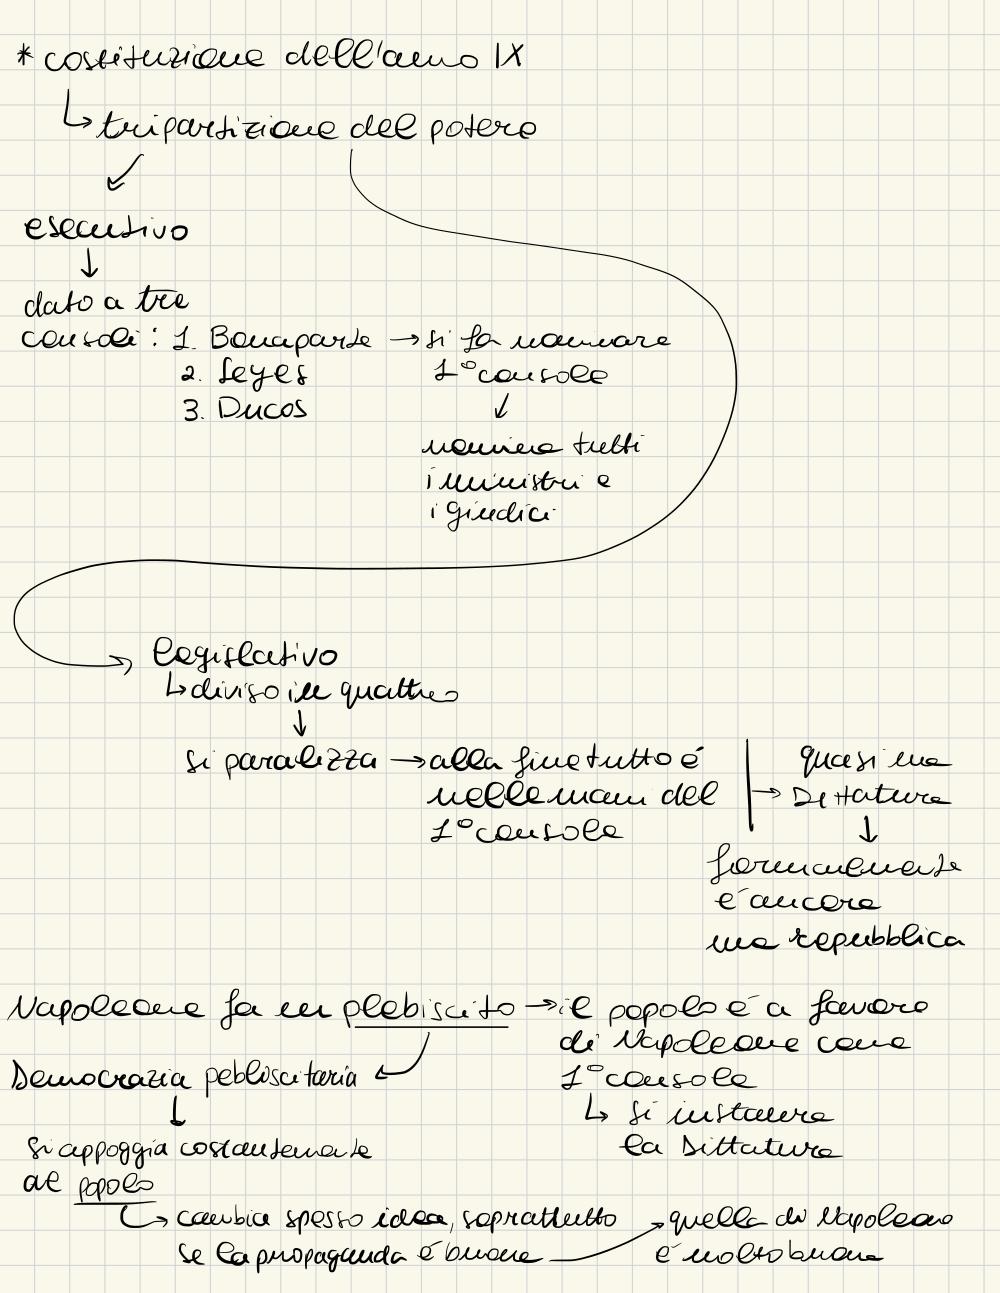 * costituzione dell'anno IX
↳ tripartizione del potere
esecutivo
dato a tre
consoli: 1. Bonaparte → si fa nominare
2. Seyes 1° console
3. Ducos
nomina tutti
i ministri e
i giudici
legislativo
↳ diviso in quattro
si paralizza → alla fine tutto è quasi una
nelle mani del → Dittatura
1° console
formalmente
è ancora
una repubblica
Napoleone fa un plebiscito → il popolo è a favore
di Napoleone come
Democrazia pebliscitaria 1° console
↳ si instaura
si appoggia costantemente la Dittatura
al popolo
↳ cambia spesso idea, soprattutto quella di Napoleone
se la propaganda è buona è molto buona